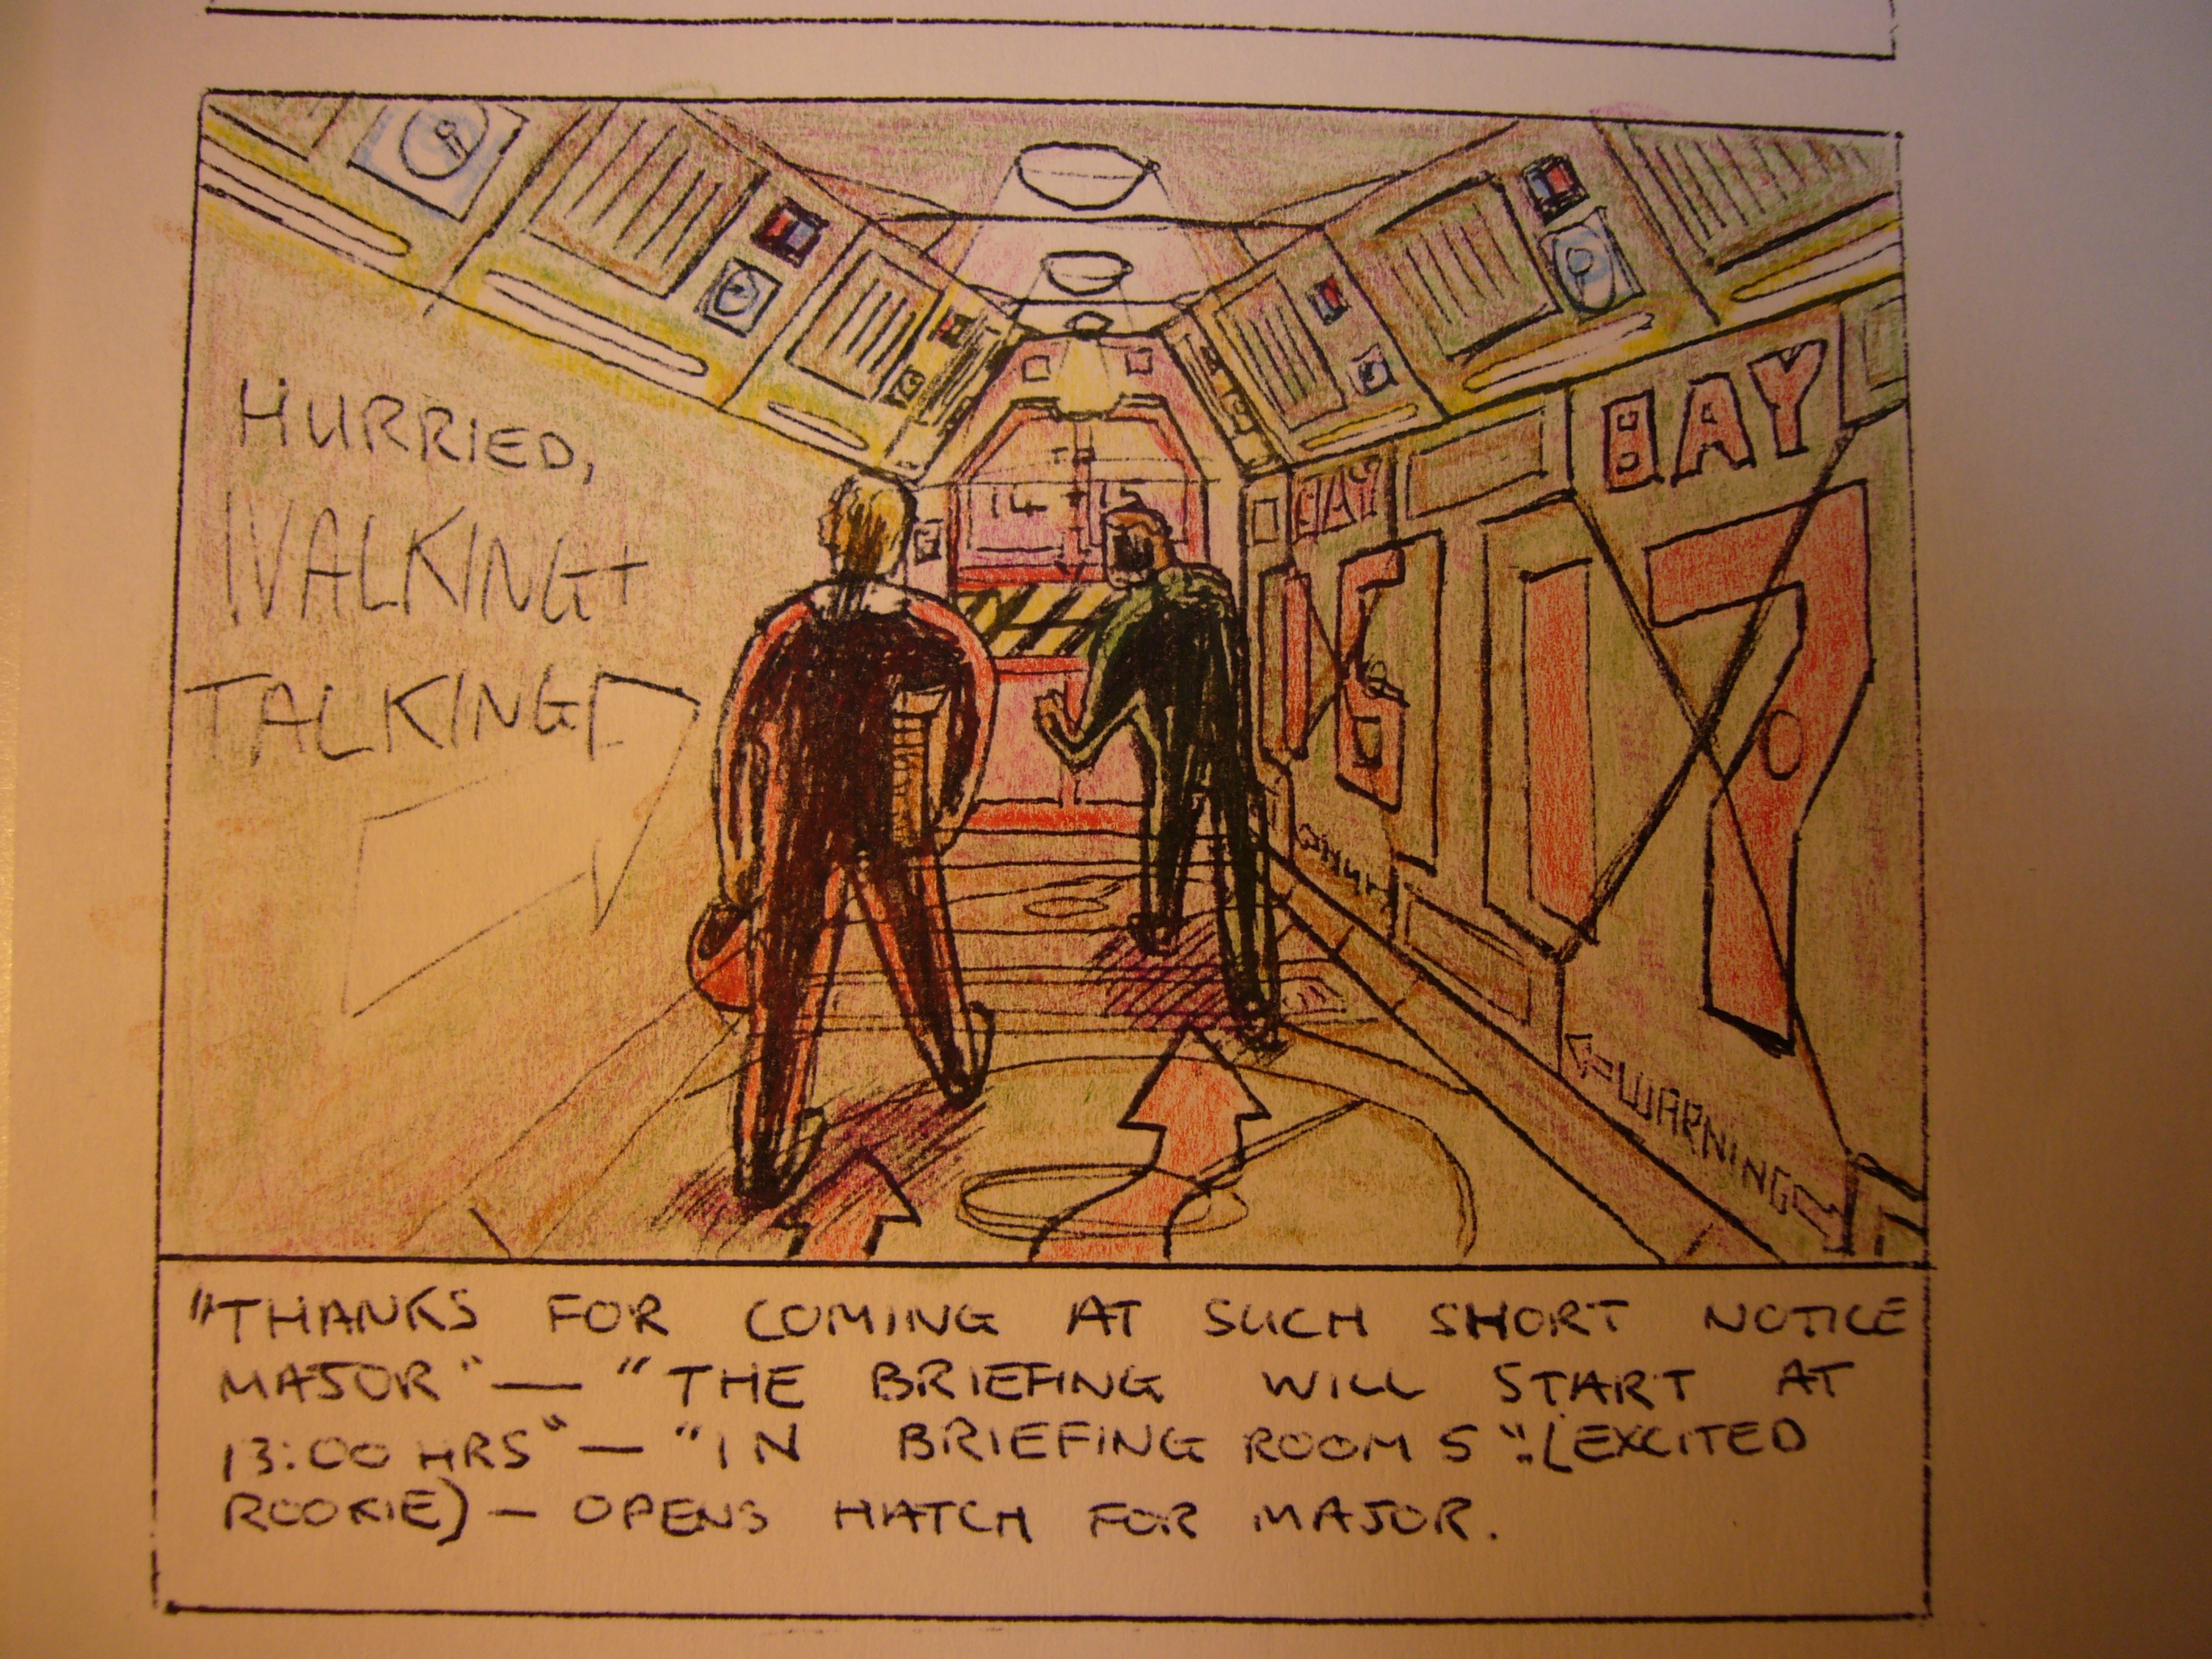 HURRIED,
WALKING +
TALKING
14 TO 15
BAY
16
BAY
17
WARNING
"THANKS FOR COMING AT SUCH SHORT NOTICE
MAJOR" — "THE BRIEFING WILL START AT
13:00 HRS" — "IN BRIEFING ROOM 5". (EXCITED
ROOKIE) — OPENS HATCH FOR MAJOR.